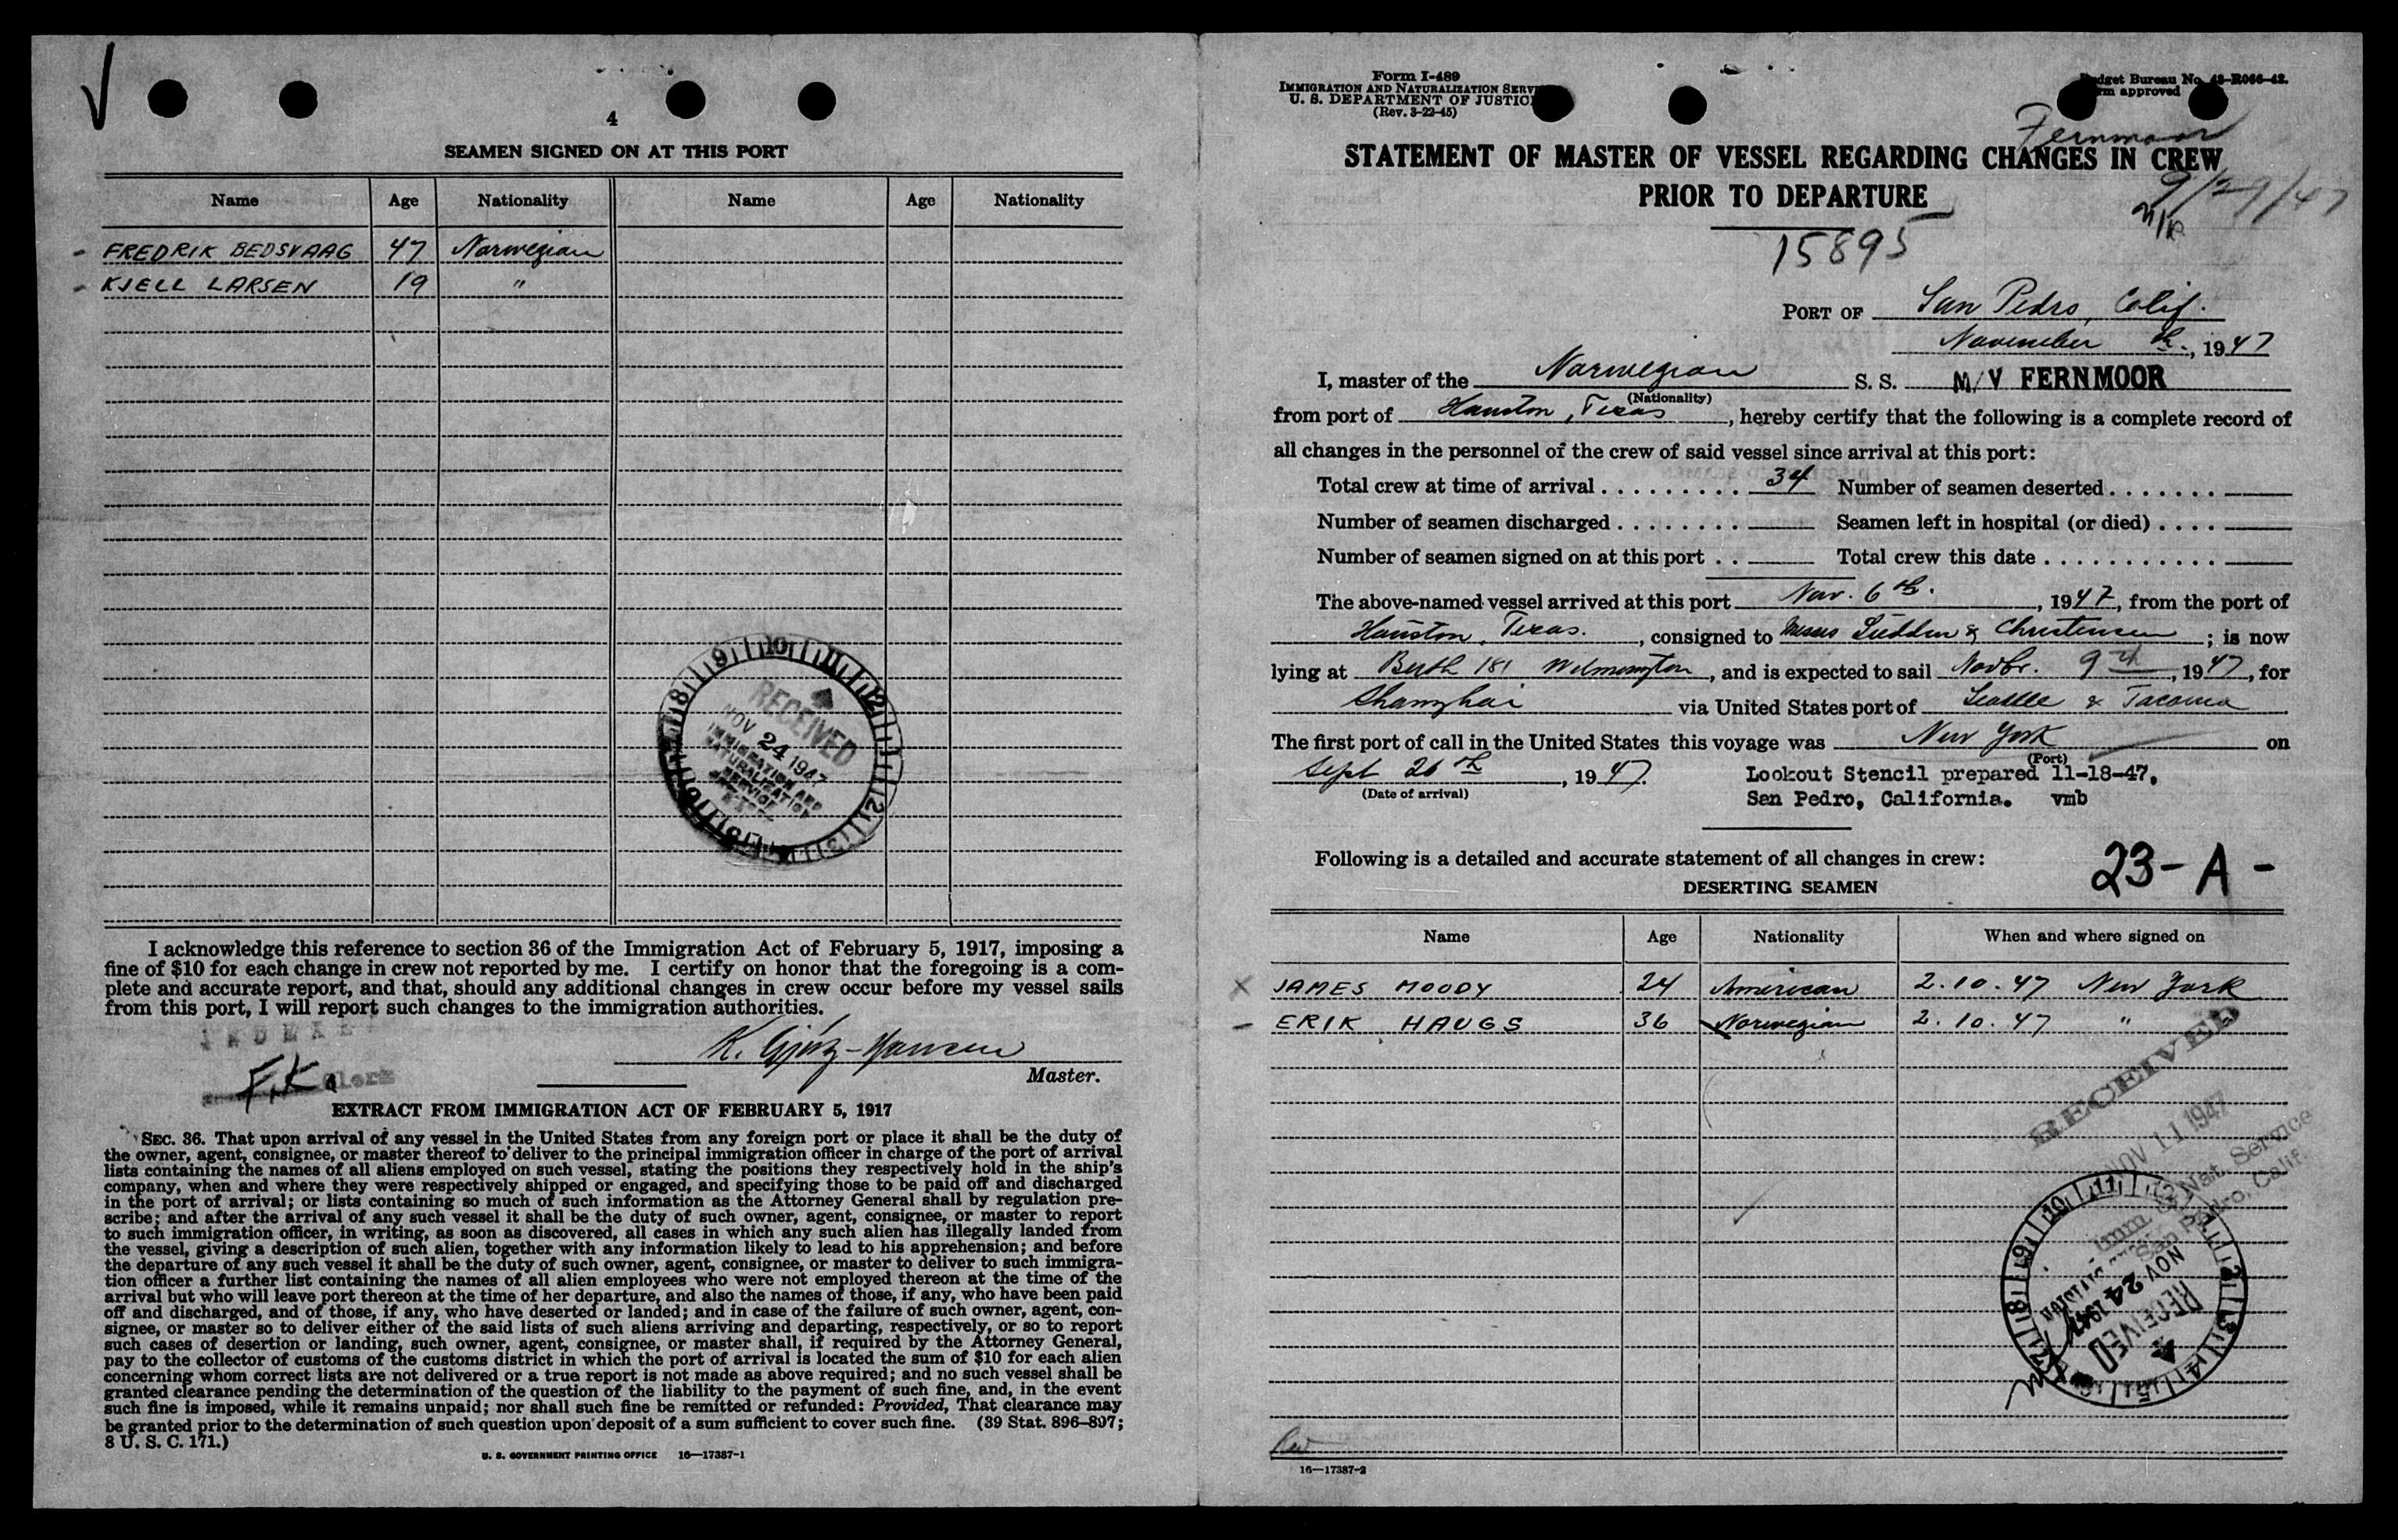 4
SEAMEN SIGNED ON AT THIS PORT
Name Age Nationality Name Age Nationality
FREDRIK BEDSVAAG 47 Norwegian
KJELL LARSEN 19 "
RECEIVED
NOV 24 1947
IMMIGRATION AND
NATURALIZATION
SERVICE
I acknowledge this reference to section 36 of the Immigration Act of February 5, 1917, imposing a
fine of $10 for each change in crew not reported by me. I certify on honor that the foregoing is a com-
plete and accurate report, and that, should any additional changes in crew occur before my vessel sails
from this port, I will report such changes to the immigration authorities.
Master.
F.K. Clerk
EXTRACT FROM IMMIGRATION ACT OF FEBRUARY 5, 1917
SEC. 36. That upon arrival of any vessel in the United States from any foreign port or place it shall be the duty of
the owner, agent, consignee, or master thereof to deliver to the principal immigration officer in charge of the port of arrival
lists containing the names of all aliens employed on such vessel, stating the positions they respectively hold in the ship's
company, when and where they were respectively shipped or engaged, and specifying those to be paid off and discharged
in the port of arrival; or lists containing so much of such information as the Attorney General shall by regulation pre-
scribe; and after the arrival of any such vessel it shall be the duty of such owner, agent, consignee, or master to report
to such immigration officer, in writing, as soon as discovered, all cases in which any such alien has illegally landed from
the vessel, giving a description of such alien, together with any information likely to lead to his apprehension; and before
the departure of any such vessel it shall be the duty of such owner, agent, consignee, or master to deliver to such immigra-
tion officer a further list containing the names of all alien employees who were not employed thereon at the time of the
arrival but who will leave port thereon at the time of her departure, and also the names of those, if any, who have been paid
off and discharged, and of those, if any, who have deserted or landed; and in case of the failure of such owner, agent, con-
signee, or master so to deliver either of the said lists of such aliens arriving and departing, respectively, or so to report
such cases of desertion or landing, such owner, agent, consignee, or master shall, if required by the Attorney General,
pay to the collector of customs of the customs district in which the port of arrival is located the sum of $10 for each alien
concerning whom correct lists are not delivered or a true report is not made as above required; and no such vessel shall be
granted clearance pending the determination of the question of the liability to the payment of such fine, and, in the event
such fine is imposed, while it remains unpaid; nor shall such fine be remitted or refunded: Provided, That clearance may
be granted prior to the determination of such question upon deposit of a sum sufficient to cover such fine. (39 Stat. 896-897;
8 U. S. C. 171.)
U. S. GOVERNMENT PRINTING OFFICE 16—17387-1
Form I-489
IMMIGRATION AND NATURALIZATION SERV
U. S. DEPARTMENT OF JUSTIC
(Rev. 3-22-45)
dget Bureau No. 43-R066-42.
rm approved
Fernmoor
STATEMENT OF MASTER OF VESSEL REGARDING CHANGES IN CREW
PRIOR TO DEPARTURE
9/29/47
15895
PORT OF San Pedro, Calif.
November th., 1947
I, master of the Norwegian S. S. M/V FERNMOOR
(Nationality)
from port of Houston, Texas, hereby certify that the following is a complete record of
all changes in the personnel of the crew of said vessel since arrival at this port:
Total crew at time of arrival . . . . . . . . . 34 Number of seamen deserted . . . . . . .
Number of seamen discharged . . . . . . . . Seamen left in hospital (or died) . . . .
Number of seamen signed on at this port . . Total crew this date . . . . . . . . . . .
The above-named vessel arrived at this port Nov. 6th., 1947, from the port of
Houston, Texas., consigned to Messrs Sudden & Christensen; is now
lying at Berth 181 Wilmington, and is expected to sail Novbr. 9th, 1947, for
Shanghai via United States port of Seattle & Tacoma
The first port of call in the United States this voyage was New York on
(Port)
Sept 26th, 1947.
(Date of arrival)
Lookout Stencil prepared 11-18-47,
San Pedro, California. vmb
Following is a detailed and accurate statement of all changes in crew:
23-A-
DESERTING SEAMEN
Name Age Nationality When and where signed on
JAMES MOODY 24 American 2.10.47 New York
ERIK HAUGS 36 Norwegian 2.10.47 " "
RECEIVED
NOV 11 1947
Imm. & Nat. Service
San Pedro, Calif.
RECEIVED
NOV 24 1947
16—17387-2